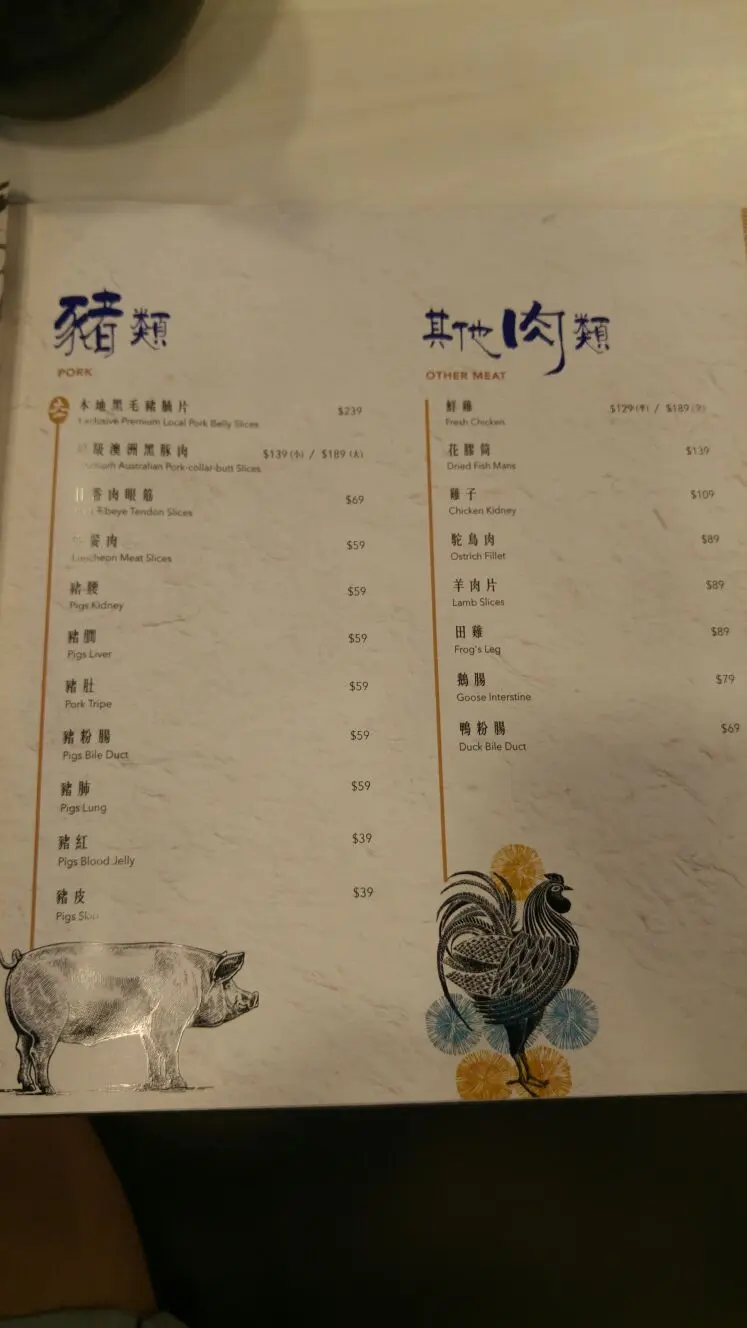 豬類
PORK
本地黑毛豬腩片 $239
Exclusive Premium Local Pork Belly Slices
級澳洲黑豚肉 $139(小) / $189(大)
Australian Pork-collar-butt Slices
香肉眼筋 $69
Ribeye Tendon Slices
餐肉 $59
Luncheon Meat Slices
豬腰 $59
Pigs Kidney
豬膶 $59
Pigs Liver
豬肚 $59
Pork Tripe
豬粉腸 $59
Pigs Bile Duct
豬肺 $59
Pigs Lung
豬紅 $39
Pigs Blood Jelly
豬皮 $39
Pigs Skin
其他肉類
OTHER MEAT
鮮雞 $129(半) / $189
Fresh Chicken
花膠筒 $139
Dried Fish Maws
雞子 $109
Chicken Kidney
鴕鳥肉 $89
Ostrich Fillet
羊肉片 $89
Lamb Slices
田雞 $89
Frog's Leg
鵝腸 $79
Goose Interstine
鴨粉腸 $69
Duck Bile Duct